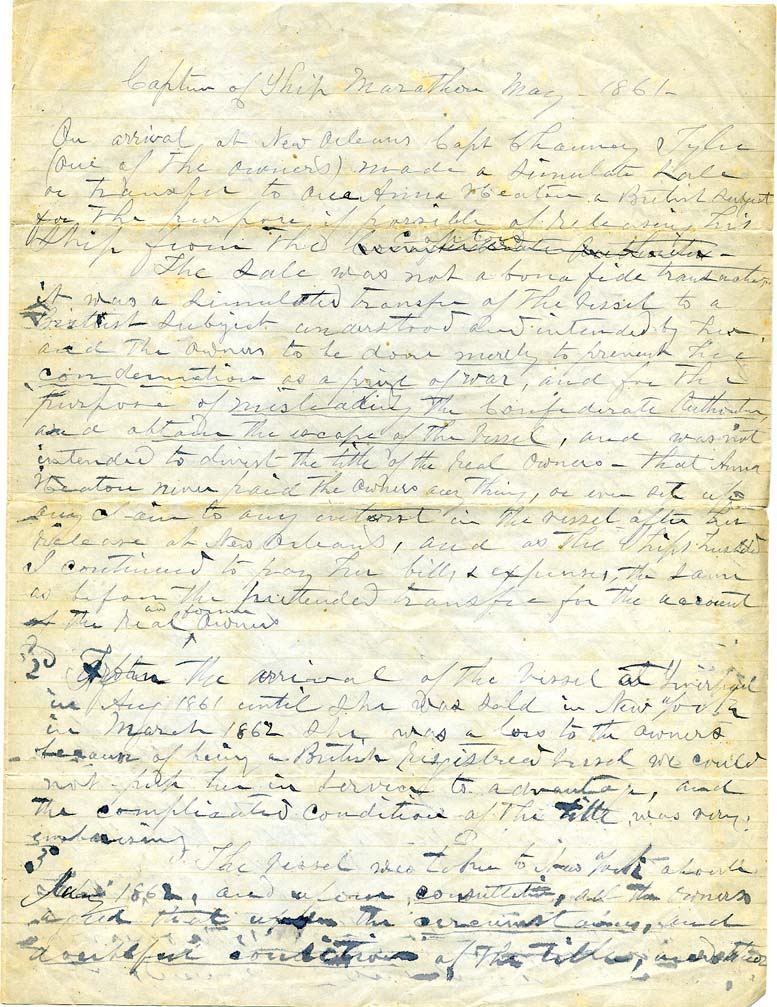 Captur of Ship Marathon May - 1861 -
On arrival at New Orleans Capt Chauncy Tyler
(One of the owners) made a Simulate Sale
or transfer to One Anna Heaton a British Subject
for the purpose if possible of releasing his
Ship from the
The Sale was not a bona fide transaction
it was a Simulated transfer of the vessel to a
British Subject understood and intended by her
and the owners to be done merely to prevent the
condemnation as a prize of war, and for the
purpose of misleading the Confederate Authorities,
and obtain the escape of the vessel, and was not
intended to divest the title of the real Owners - that Anna
Heaton never paid the owners any thing, or ever set up
any claim to any interest in the vessel after her
release at New Orleans, and as the Ships husband
I continued to pay her bills & expenses, the same
as before the pretended transfer for the account
of the real and former Owners
2d From the arrival of the vessel at Liverpool
in Aug 1861 until She was Sold in New York
in March 1862 She was a loss to the owners
because of being a British Registered vessel we could
not keep her in Service to advantage, and
the complicated condition of the title was very
embarrassing
3d The vessel was taken to New York about
Jany 1862, and upon consultation, all the owners
agreed that under the circumstances, and
doubtful condition of the title,